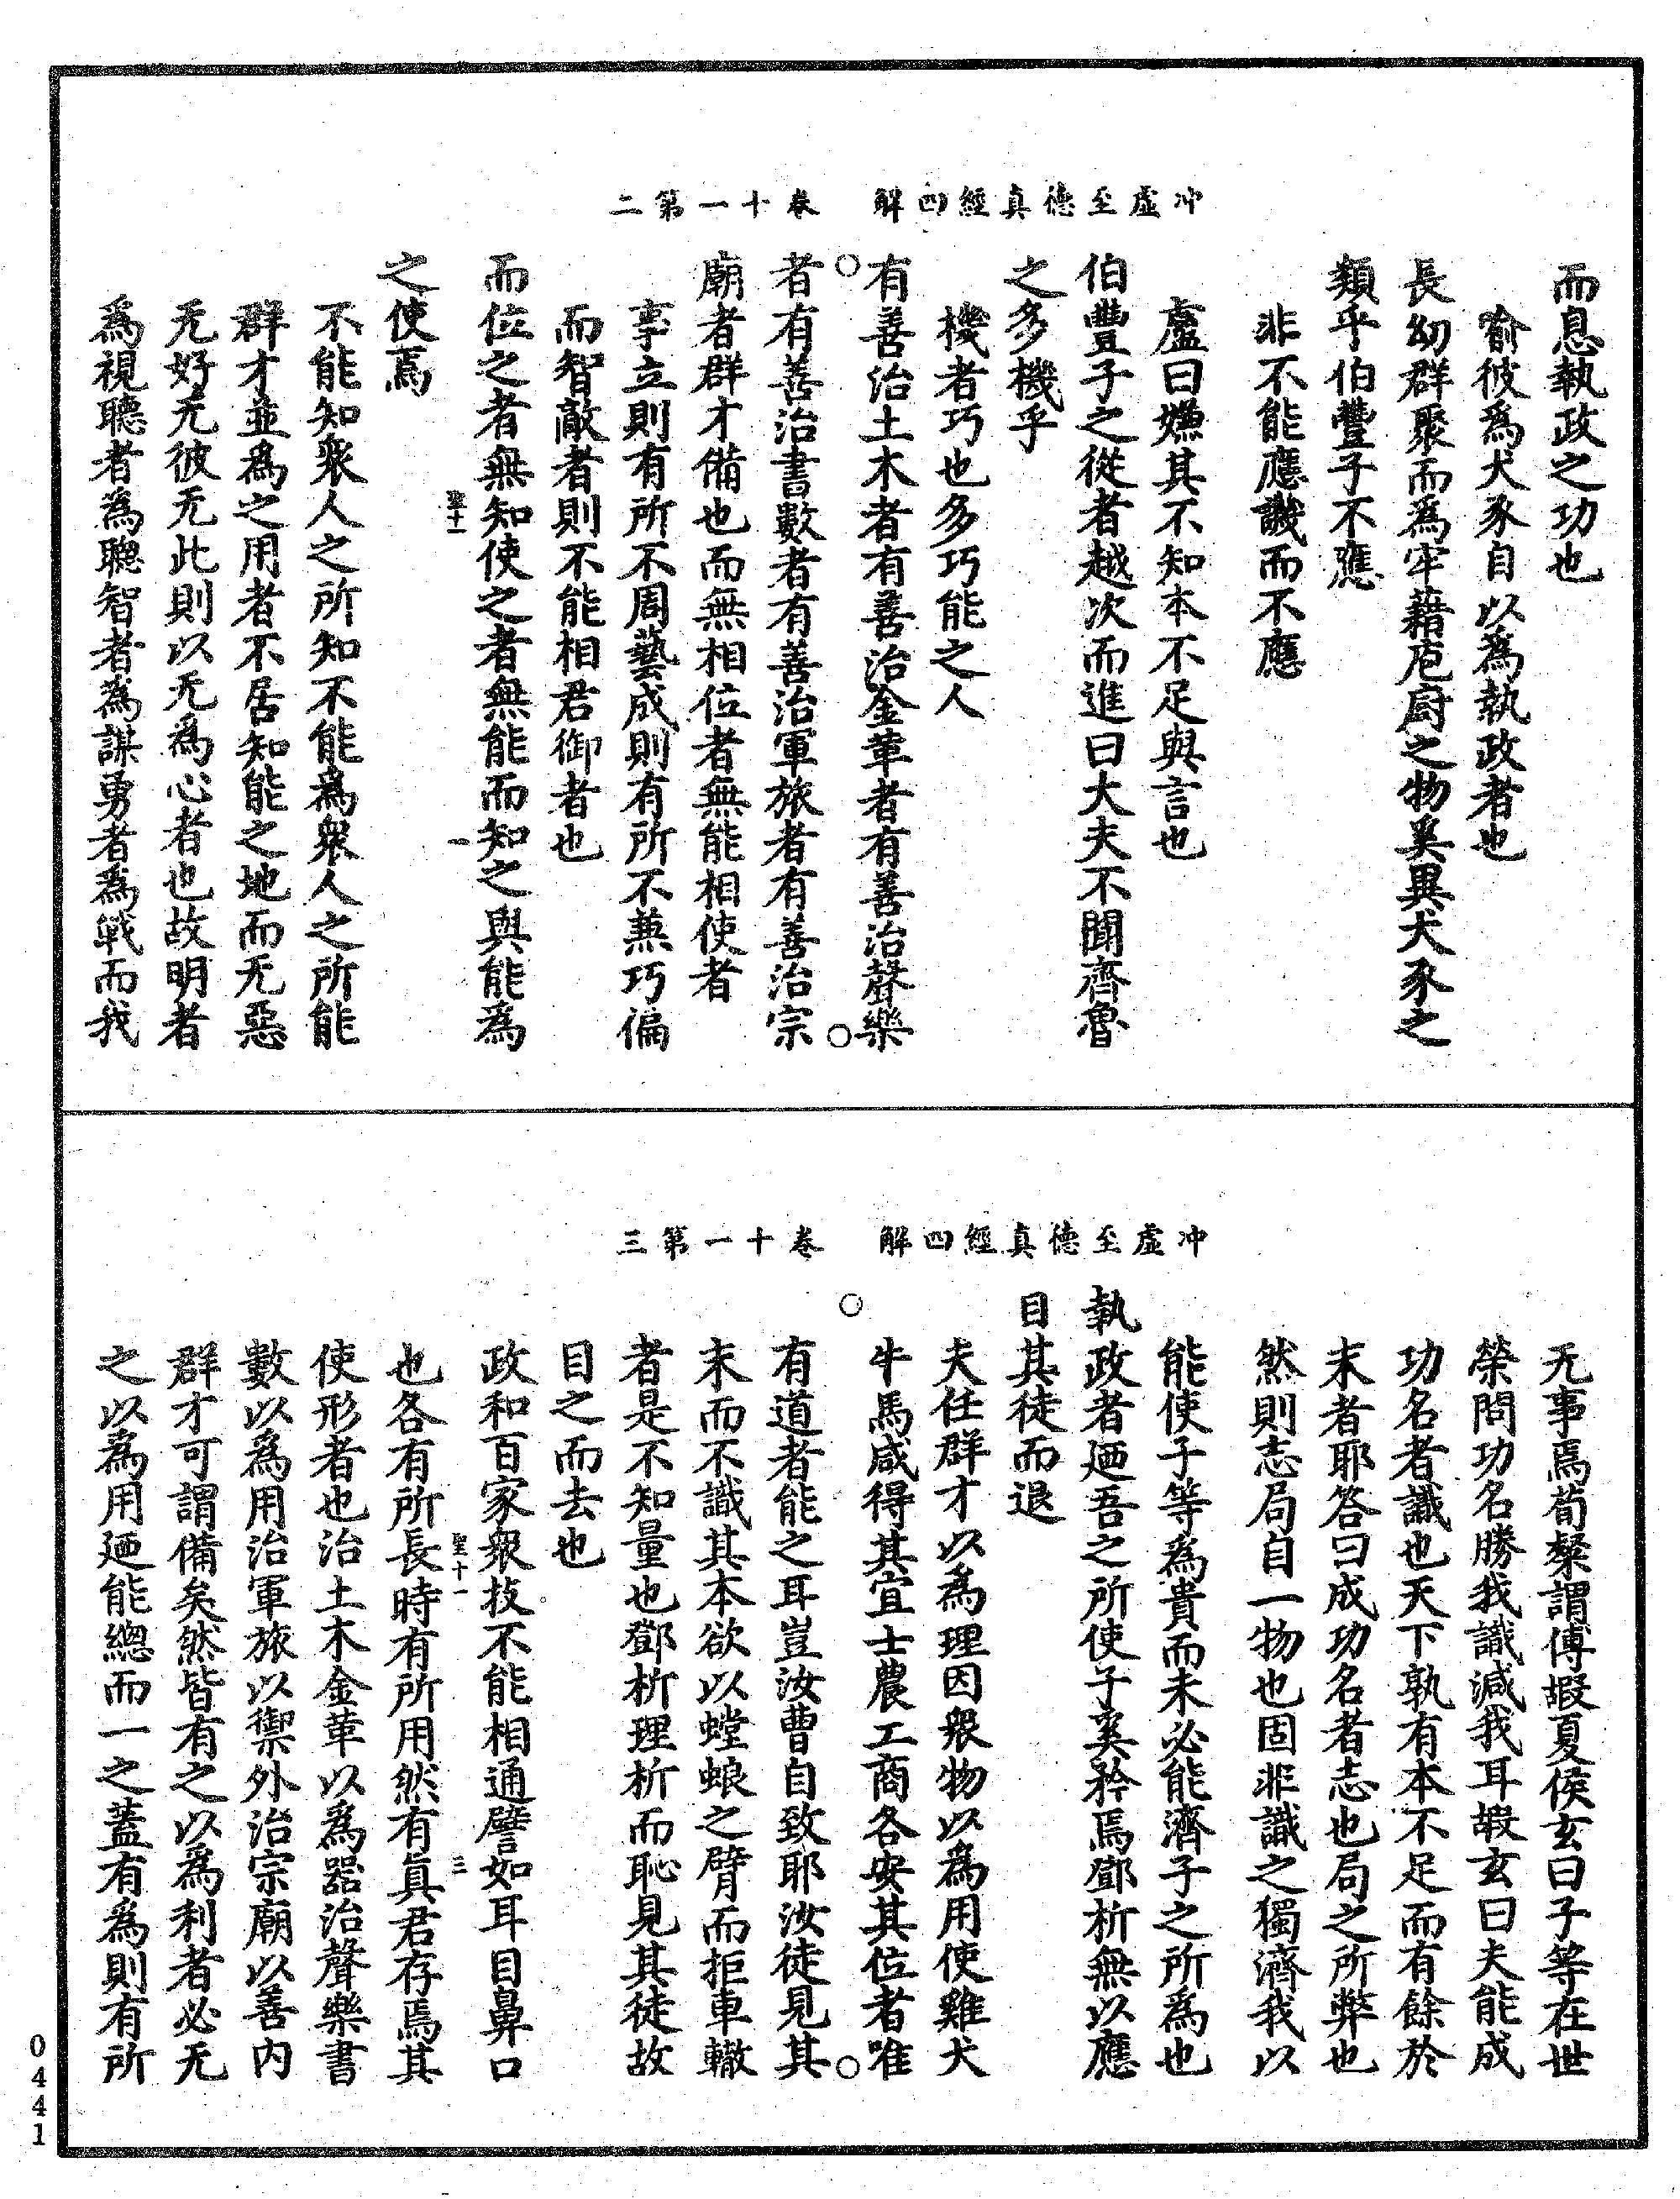 冲虛至德真經四解　卷十一第二
而息執政之功也
喻彼爲犬豕自以為執政者也
長幼群聚而爲牢藉庖廚之物奚異犬豕之
類乎伯豐子不應
非不能應譏而不應
盧曰嫌其不知本不足與言也
伯豐子之從者越次而進曰大夫不聞齊魯
之多機乎
機者巧也多巧能之人
有善治土木者有善治金革者有善治聲樂
者有善治書數者有善治軍旅者有善治宗
廟者群才備也而無相位者無能相使者
事立則有所不周藝成則有所不兼巧偏
而智敵者則不能相君御者也
而位之者無知使之者無能而知之與能爲
聖十一　一
之使焉
不能知衆人之所知不能爲衆人之所能
群才並爲之用者不居知能之地而无惡
无好无彼无此則以无爲心者也故明者
爲視聽者為聰智者為謀勇者爲戰而我
冲虛至德真經四解　卷十一第三
无事焉荀粲謂傅嘏夏侯玄曰子等在世
榮問功名勝我識減我耳嘏玄曰夫能成
功名者識也天下孰有本不足而有餘於
末者耶答曰成功名者志也局之所弊也
然則志局自一物也固非識之獨濟我以
能使子等為貴而未必能濟子之所為也
執政者迺吾之所使子奚矜焉鄧析無以應
目其徒而退
夫任群才以為理因衆物以為用使雞犬
牛馬咸得其宜士農工商各安其位者唯
有道者能之耳豈汝曹自致耶汝徒見其
末而不識其本欲以螳蜋之臂而拒車轍
者是不知量也鄧析理析而恥見其徒故
目之而去也
政和百家衆技不能相通譬如耳目鼻口
聖十一　三
也各有所長時有所用然有真君存焉其
使形者也治土木金革以爲器治聲樂書
數以爲用治軍旅以禦外治宗廟以善内
群才可謂備矣然皆有之以爲利者必无
之以為用迺能總而一之蓋有為則有所
0441